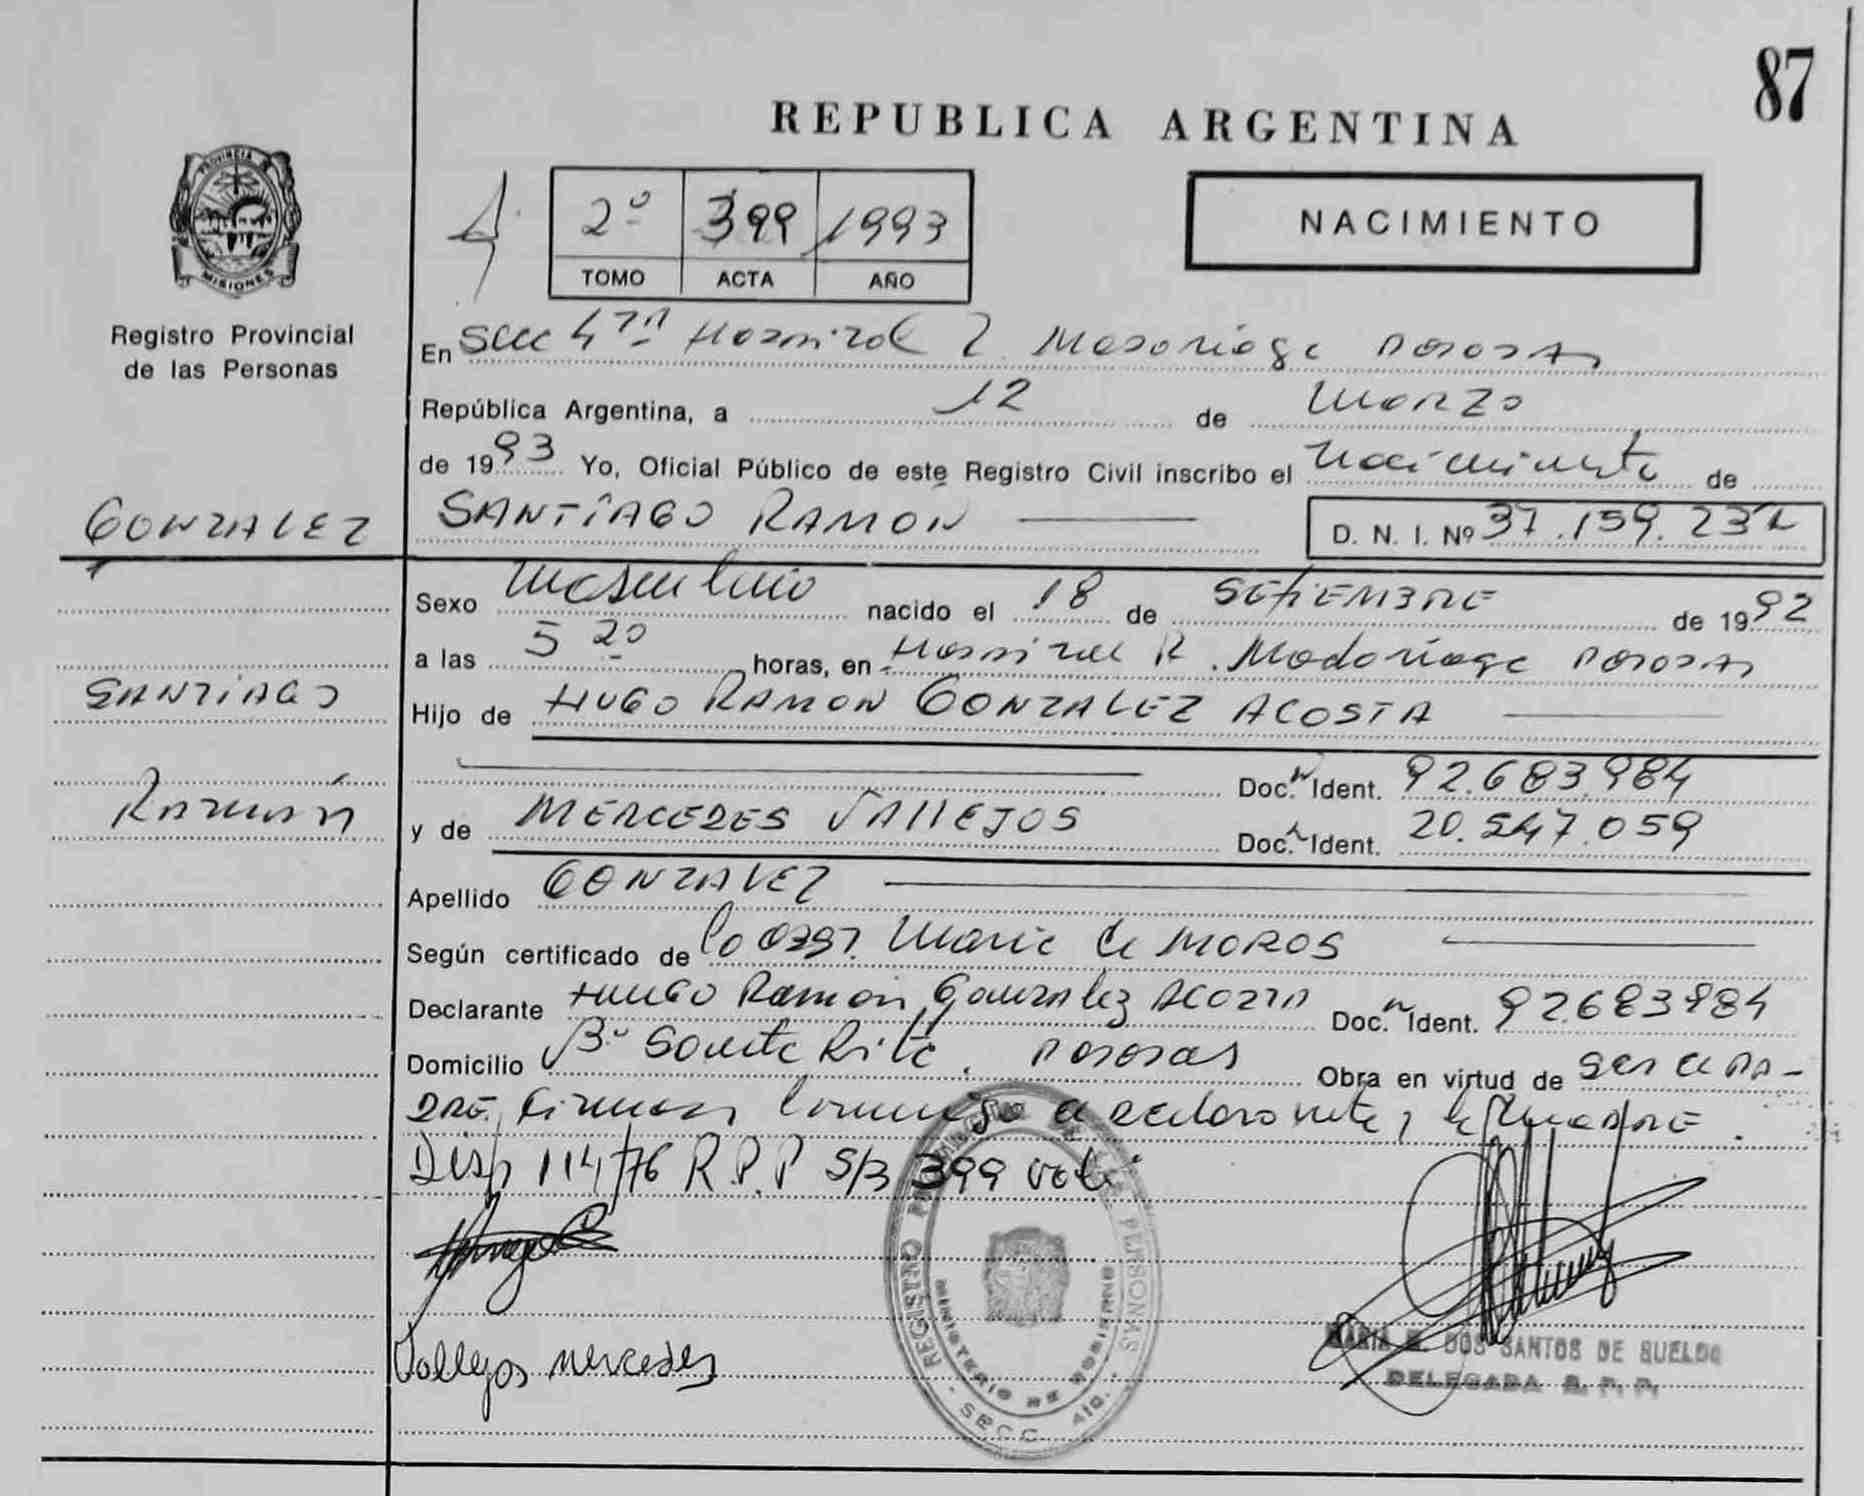 87
REPUBLICA ARGENTINA
PROVINCIA DE
MISIONES
Registro Provincial
de las Personas
2º 399 1993
TOMO ACTA AÑO
NACIMIENTO
En Secc 4ta Hospital R. Madariaga Posadas
República Argentina, a 12 de Marzo
de 1993 Yo, Oficial Público de este Registro Civil inscribo el nacimiento de
GONZALEZ SANTIAGO RAMON D. N. I. Nº 37.159.232
Sexo Masculino nacido el 18 de SETIEMBRE de 1992
a las 5 20 horas, en Hospital R. Madariaga Posadas
SANTIAGO
Hijo de HUGO RAMON GONZALEZ ACOSTA
Doc. Ident. 92.683.984
Ramón
y de MERCEDES VALLEJOS Doc. Ident. 20.547.059
Apellido GONZALEZ
Según certificado de la Obst. Maria de MOROS
Declarante HUGO Ramon Gonzalez Acosta Doc. Ident. 92683984
Domicilio Bº Santa Rita. Posadas Obra en virtud de ser el PA-
DRE. Firman conmigo el declarante y la MADRE.
Disp 114/76 R.P.P S/B 399 vale
Vallejos mercedes
REGISTRO PERSONAS
MINISTERIO DE GOBIERNO
SECC. 4ta.
MARIA DOS SANTOS DE SUELDO
DELEGADA R. P. P.